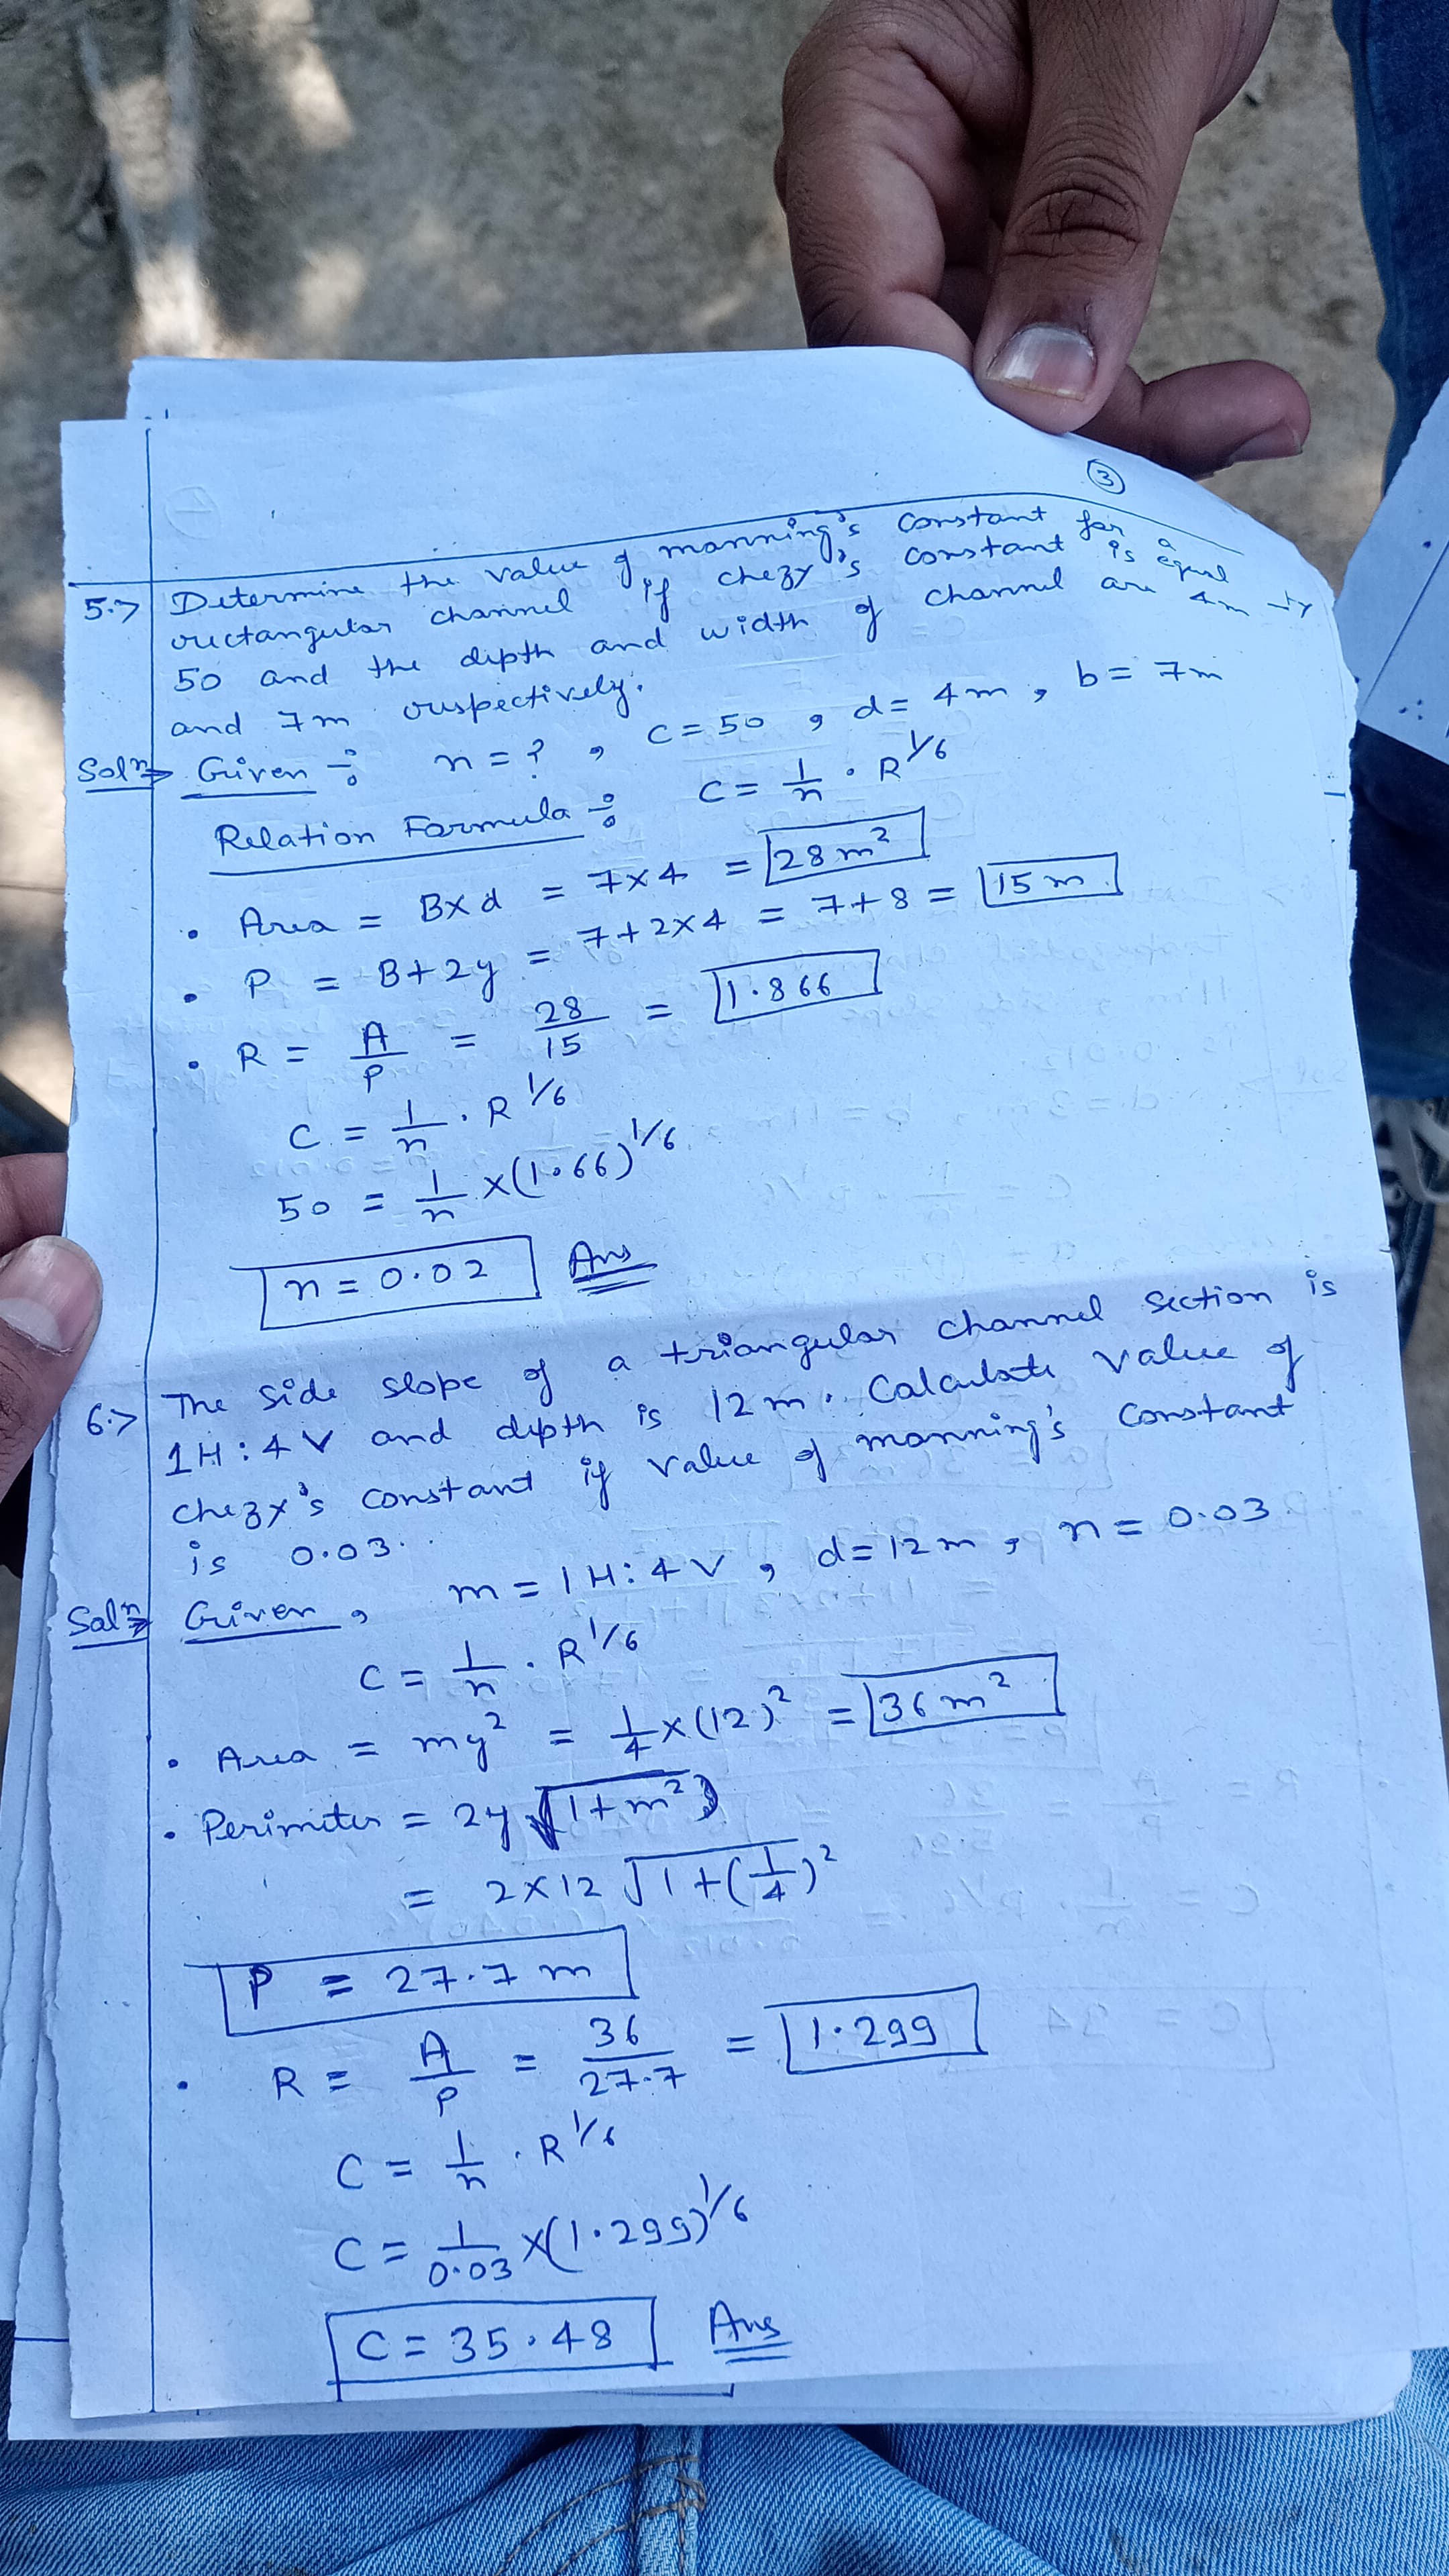 3
5.> Determine the value of manning's constant for a
rectangular channel if chezy's constant is equal
50 and the depth and width of channel are 4m
and 7m respectively.
Solⁿ⇒ Given ÷ n = ? , C = 50 , d = 4m , b = 7m
Relation Formula ÷ C = 1/n · R^1/6
• Area = B×d = 7×4 = 28m²
• P = B+2y = 7+2×4 = 7+8 = 15m
• R = A/P = 28/15 = 1.866
C = 1/n · R^1/6
50 = 1/n ×(1.66)^1/6
n = 0.02 Ans
6.> The side slope of a triangular channel section is
1H:4V and depth is 12m. Calculate value of
chezy's constant if value of manning's constant
is 0.03.
Solⁿ⇒ Given, m = 1H:4V , d=12m , n = 0.03
C = 1/n · R^1/6
• Area = my² = 1/4×(12)² = 36m²
• Perimeter = 2y √1+m²
= 2×12 √1+(1/4)²
P = 27.7 m
• R = A/P = 36/27.7 = 1.299
C = 1/n · R^1/6
C = 1/0.03 ×(1.299)^1/6
C = 35.48 Ans